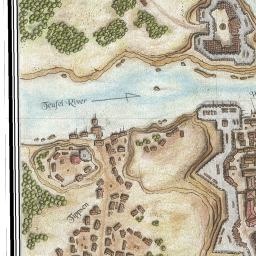 Teufel River
Tappen